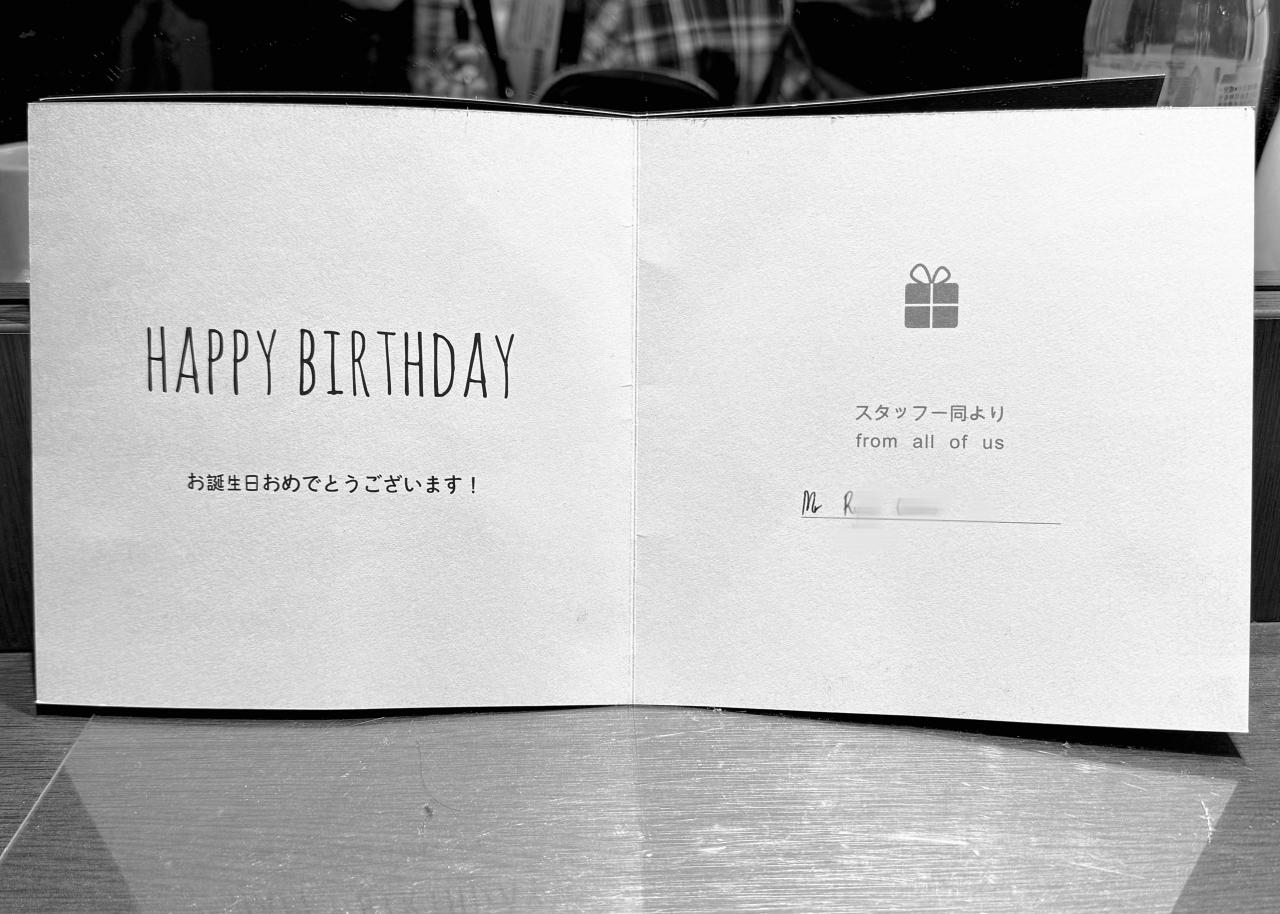 HAPPY BIRTHDAY
お誕生日おめでとうございます！
スタッフ一同より
from all of us
Mr R